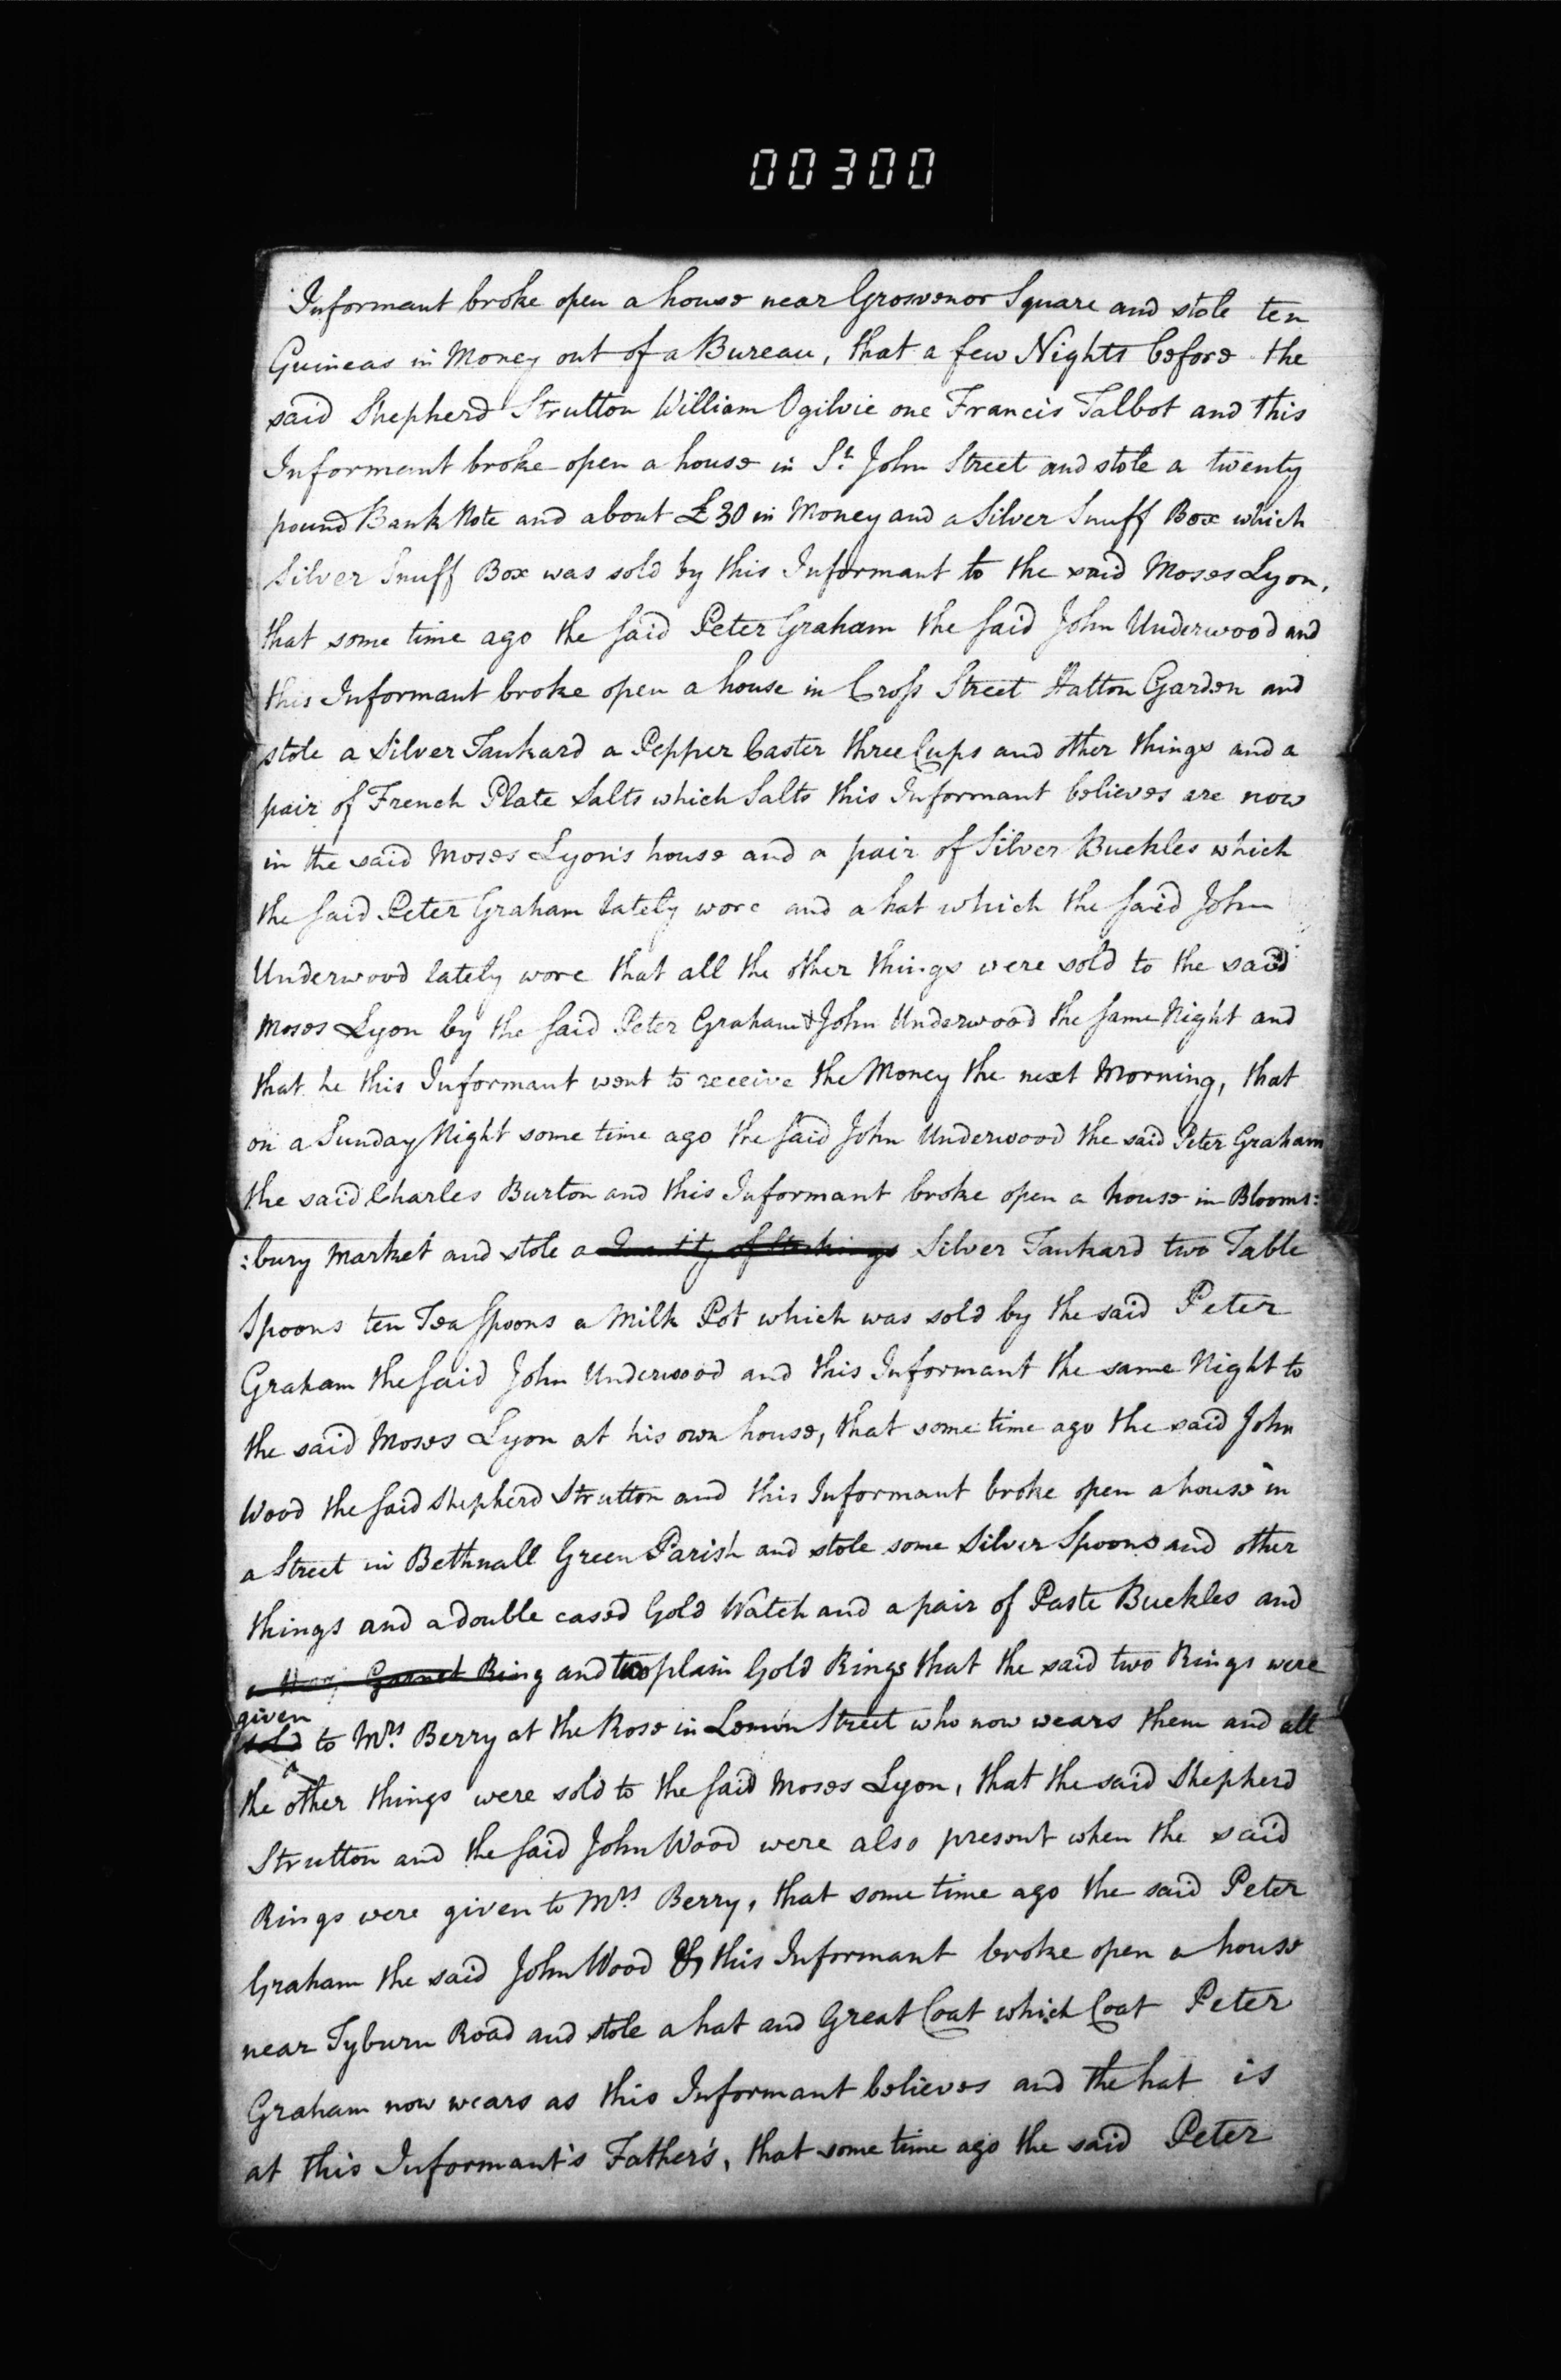 00300
Informant broke open a house near Grosvenor Square and stole ten
Guineas in Money out of a Bureau, that a few Nights before the
said Shepherd Strutton William Ogilvie one Francis Talbot and this
Informant broke open a house in St. John Street and stole a twenty
pound Bank Note and about £30 in Money and a Silver Snuff Box which
Silver Snuff Box was sold by this Informant to the said Moses Lyon,
that some time ago the said Peter Graham the said John Underwood and
this Informant broke open a house in Cross Street Hatton Garden and
stole a Silver Tankard a Pepper Caster three Cups and other things and a
pair of French Plate Salts which Salts this Informant believes are now
in the said Moses Lyon's house and a pair of Silver Buckles which
the said Peter Graham lately wore and a hat which the said John
Underwood lately wore that all the other things were sold to the said
Moses Lyon by the said Peter Graham & John Underwood the same Night and
that he this Informant went to receive the Money the next Morning, that
on a Sunday Night some time ago the said John Underwood the said Peter Graham
the said Charles Burton and this Informant broke open a house in Blooms:
:bury Market and stole a Quantity of Stockings Silver Tankard two Table
Spoons ten Tea Spoons a Milk Pot which was sold by the said Peter
Graham the said John Underwood and this Informant the same Night to
the said Moses Lyon at his own house, that some time ago the said John
Wood the said Shepherd Strutton and this Informant broke open a house in
a Street in Bethnall Green Parish and stole some Silver Spoons and other
things and a double cased Gold Watch and a pair of Paste Buckles and
a Garnet Ring and two plain Gold Rings that the said two Rings were
given
sold to Mrs. Berry at the Rose in Lemon Street who now wears them and all
the other things were sold to the said Moses Lyon, that the said Shepherd
Strutton and the said John Wood were also present when the said
Rings were given to Mrs. Berry, that some time ago the said Peter
Graham the said John Wood & this Informant broke open a house
near Tyburn Road and stole a hat and Great Coat which Coat Peter
Graham now wears as this Informant believes and the hat is
at this Informant's Father's, that some time ago the said Peter